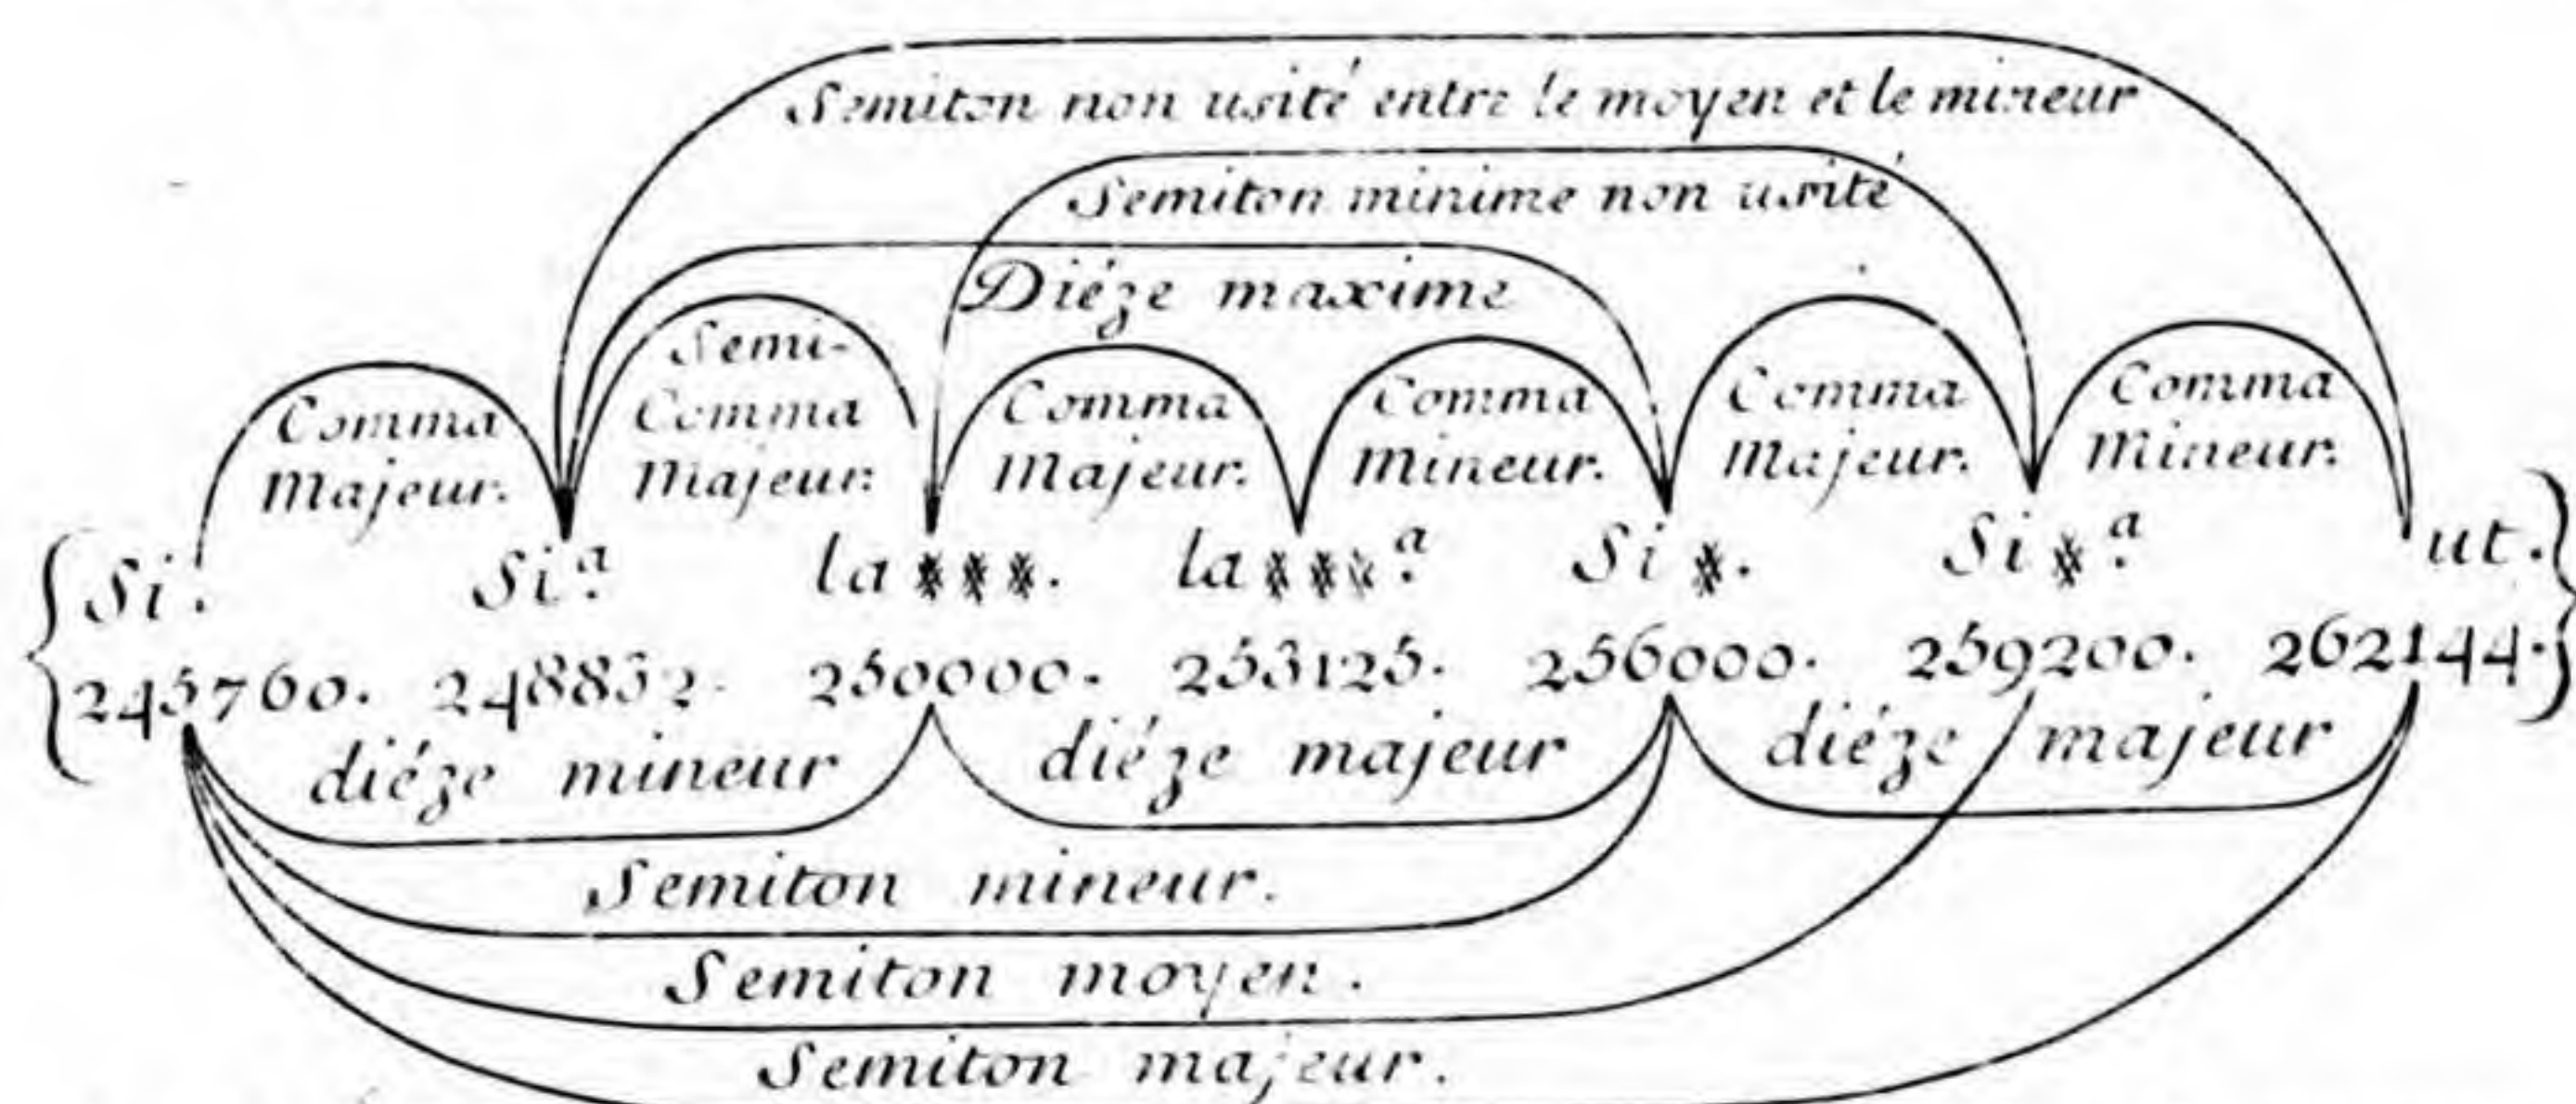 Semiton non usité entre le moyen et le mineur
Semiton minime non usité
Diéze maxime
Comma Majeur.
Semi-Comma Majeur.
Comma Majeur.
Comma Mineur.
Comma Majeur.
Comma Mineur.
Si. Si.ª la ⁂⁂⁂. la ⁂⁂⁂.ª Si ⁂. Si ⁂.ª ut.
245760. 248832. 250000. 253125. 256000. 259200. 262144.
diéze mineur diéze majeur diéze majeur
Semiton mineur.
Semiton moyen.
Semiton majeur.